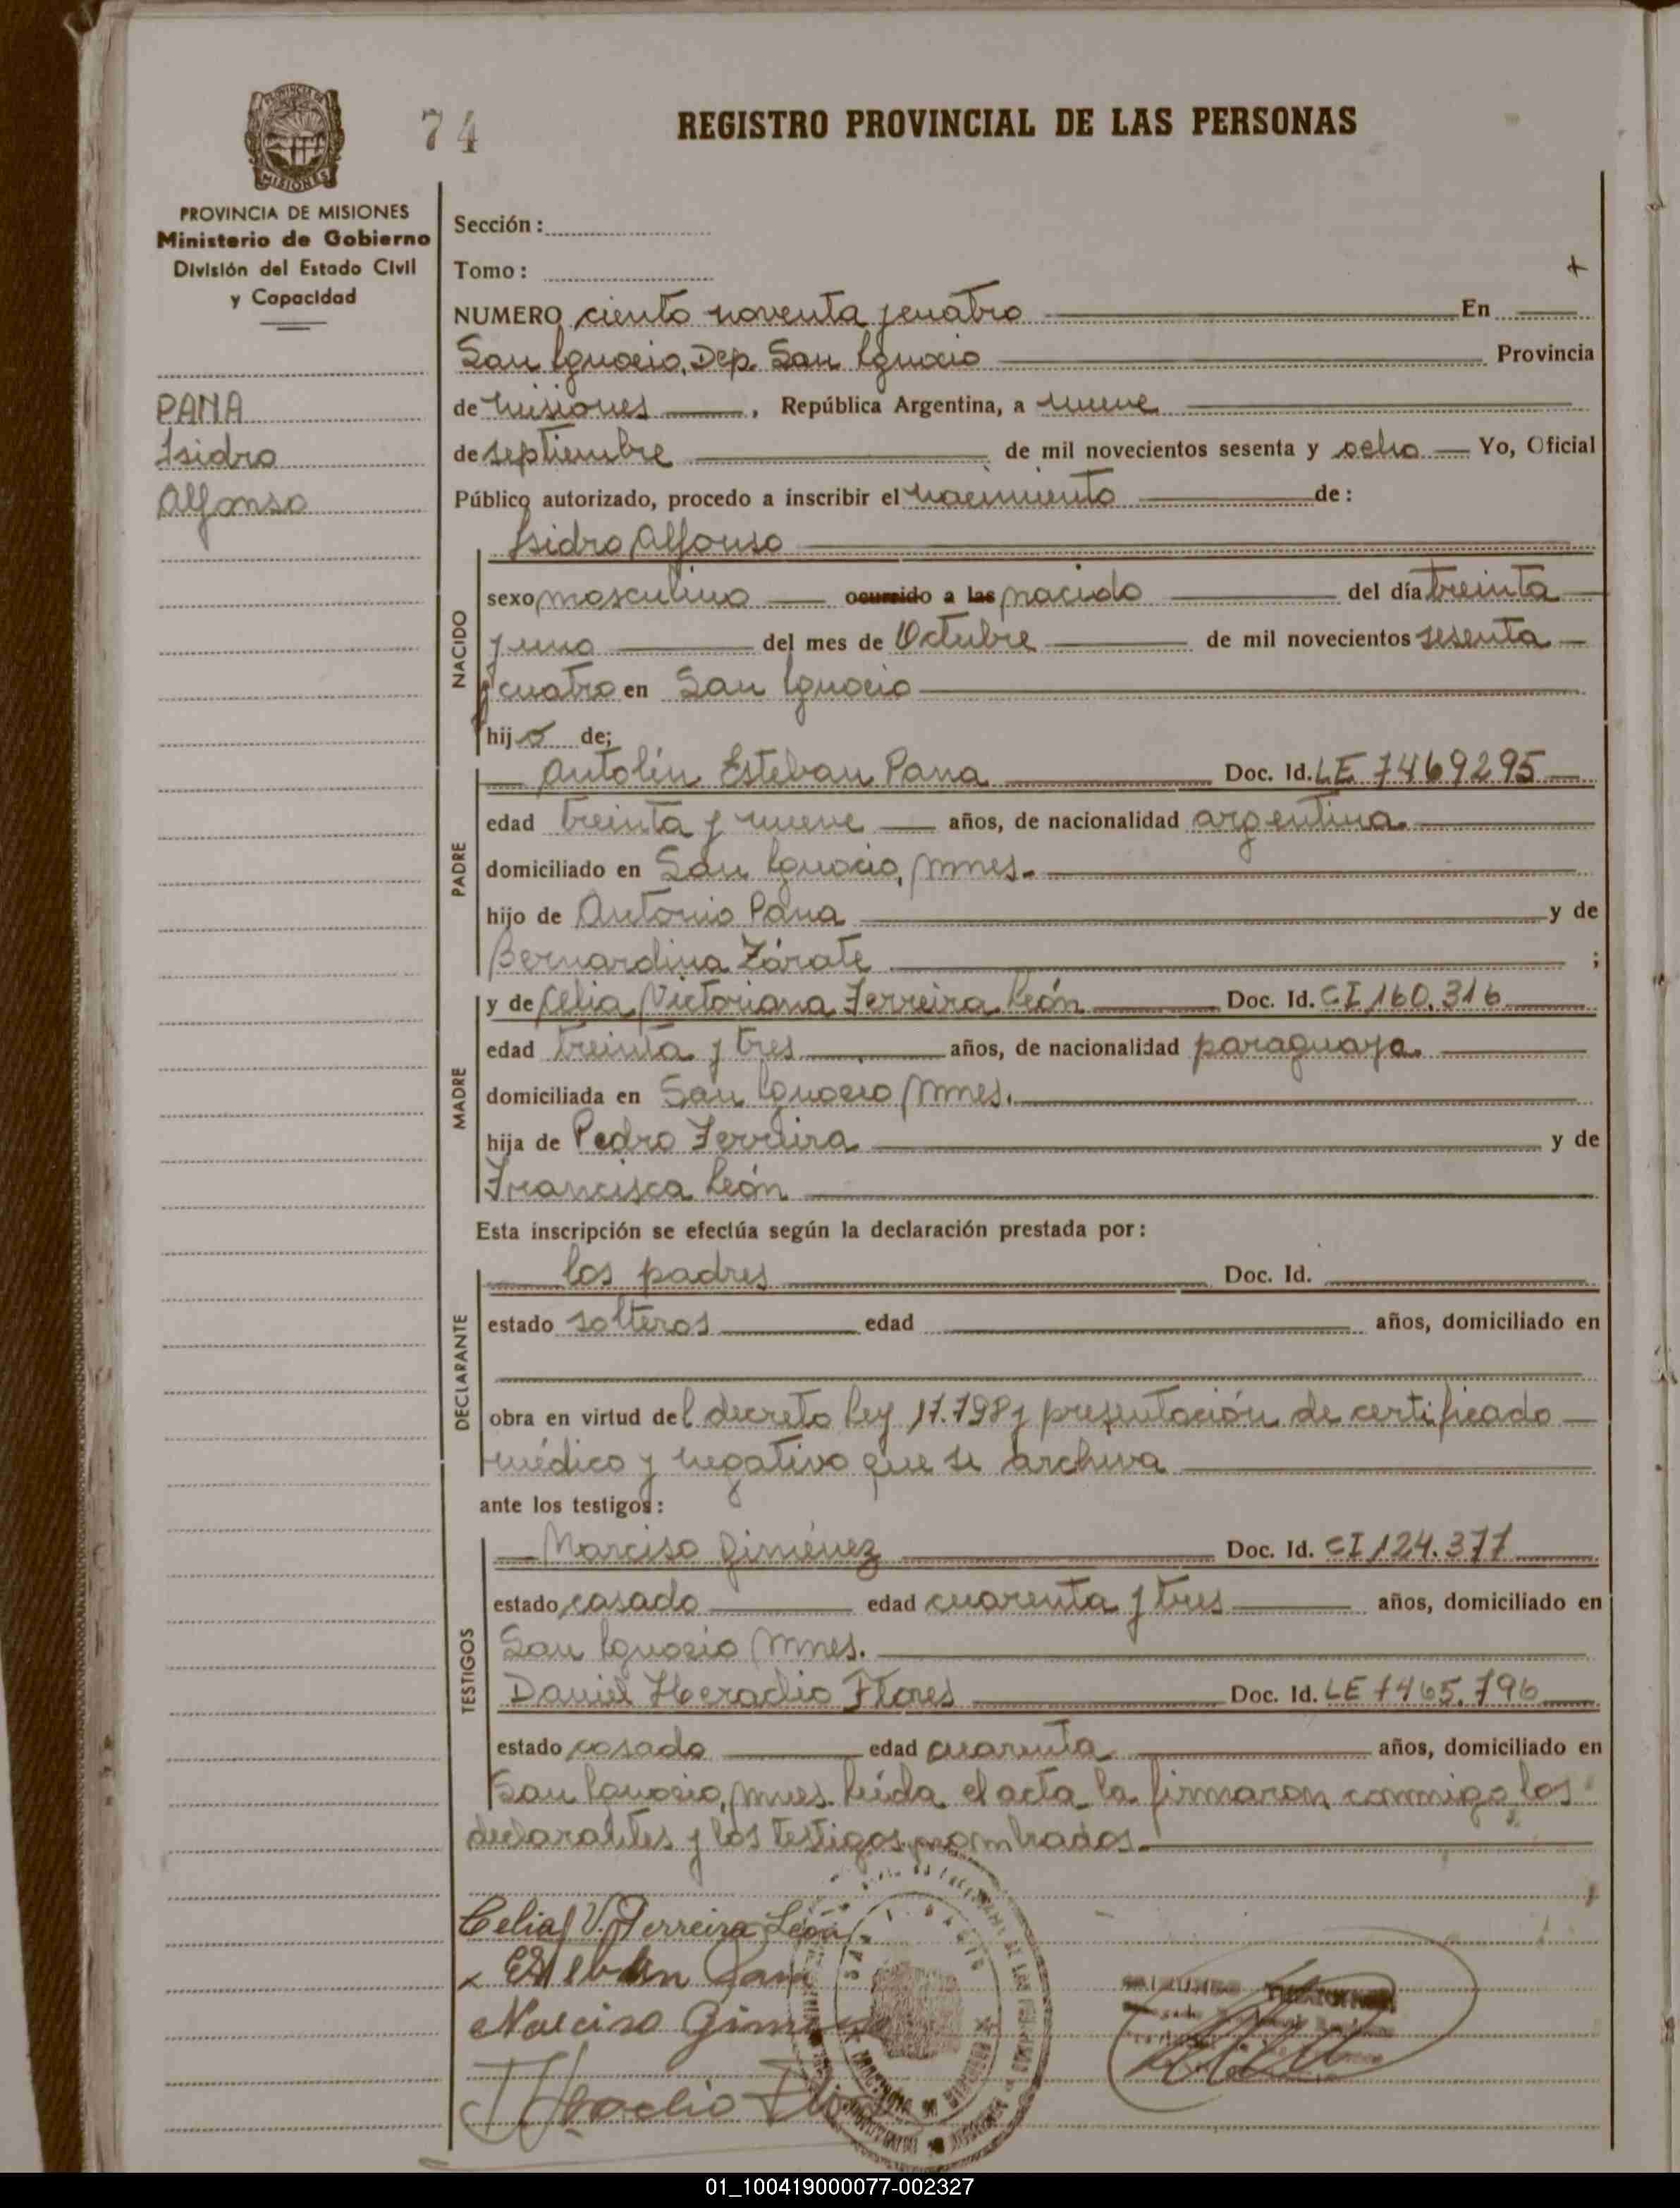 74
REGISTRO PROVINCIAL DE LAS PERSONAS
MISIONES
PROVINCIA DE MISIONES
Ministerio de Gobierno
División del Estado Civil
y Capacidad
PANA
Isidro
Alfonso
Sección:
Tomo:
NUMERO ciento noventa y cuatro En
San Ignacio, Dep. San Ignacio Provincia
de Misiones, República Argentina, a nueve
de septiembre de mil novecientos sesenta y ocho Yo, Oficial
Público autorizado, procedo a inscribir el nacimiento de:
Isidro Alfonso
NACIDO
sexo masculino ocurrido a las nacido del día treinta
y uno del mes de Octubre de mil novecientos sesenta
y cuatro en San Ignacio
hijo de;
PADRE
Antolín Esteban Pana Doc. Id. LE 7469295
edad treinta y nueve años, de nacionalidad argentina.
domiciliado en San Ignacio, Mnes.
hijo de Antonio Pana y de
Bernardina Zárate ;
MADRE
y de Celia Victoriana Ferreira León Doc. Id. CI 160.316
edad treinta y tres años, de nacionalidad paraguaya.
domiciliada en San Ignacio Mnes.
hija de Pedro Ferreira y de
Francisca León
Esta inscripción se efectúa según la declaración prestada por:
DECLARANTE
los padres Doc. Id.
estado solteros edad años, domiciliado en
obra en virtud del decreto Ley 17.798 y presentación de certificado
médico y negativo que se archiva
ante los testigos:
TESTIGOS
Narciso Giménez Doc. Id. CI 124.377
estado casado edad cuarenta y tres años, domiciliado en
San Ignacio Mnes.
Daniel Heraclio Flores Doc. Id. LE 7465.796
estado casado edad cuarenta años, domiciliado en
San Ignacio, Mnes. Leída el acta la firmaron conmigo los
declarantes y los testigos nombrados.
Celia V. Ferreira León
x Esteban Pana
Narciso Gimenez
Heraclio Flores
01_100419000077-002327